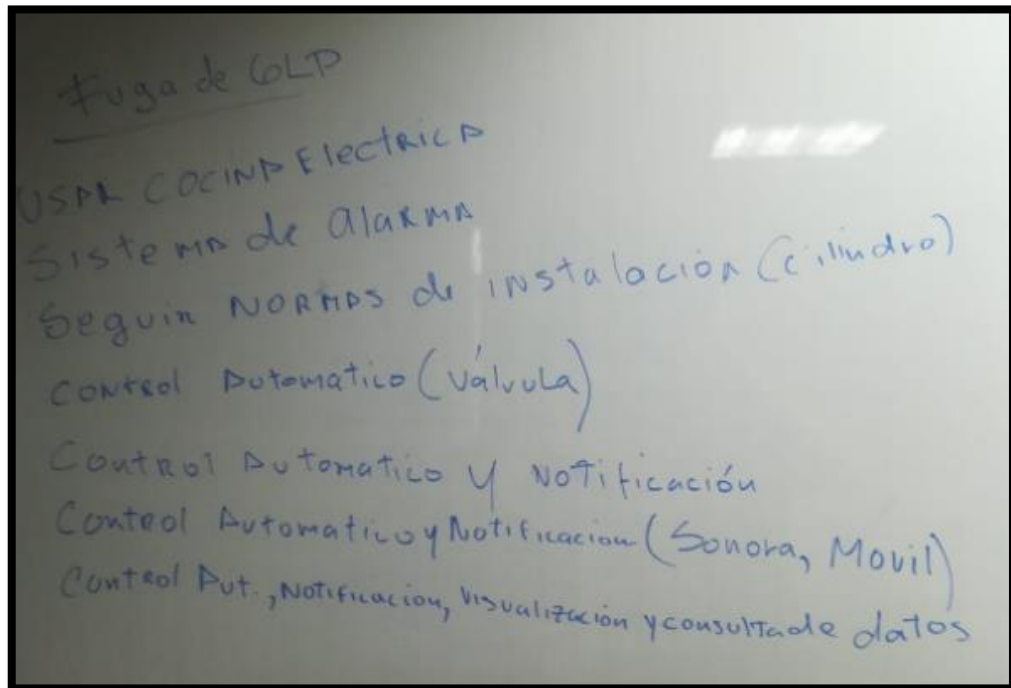 Fuga de GLP
USAR COCINA Electrica
Sistema de alarma
Seguir NORMAS de instalación (cilindro)
Control Automatico (Válvula)
Control Automatico y Notificación
Control Automatico y Notificacion (Sonora, Movil)
Control Aut., Notificacion, Visualización y consulta de datos